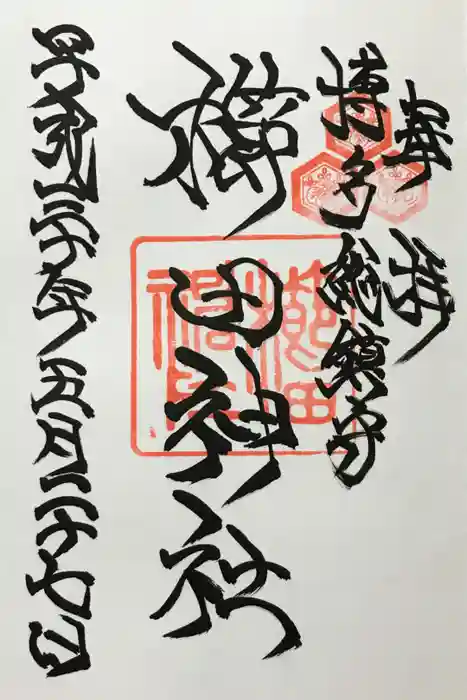 奉拝
博多総鎮守
櫛田神社
平成三十年五月二十七日